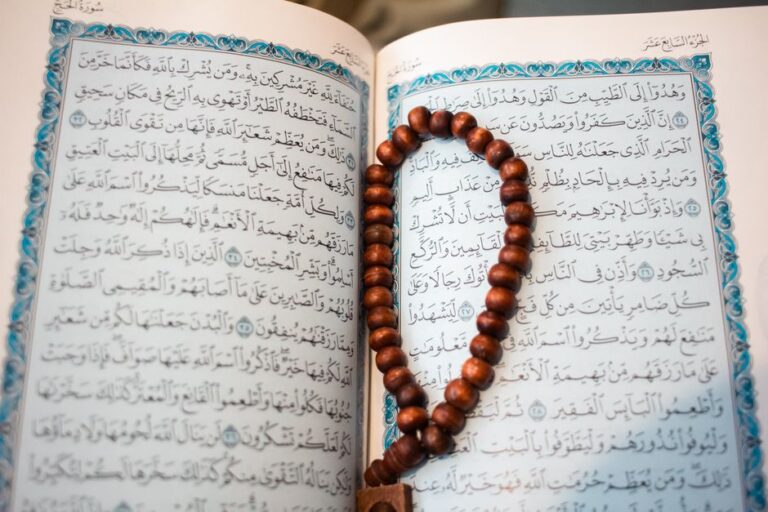 الجُزْءُ السَّابِعَ عَشَرَ
وَهُدُوٓا۟ إِلَى ٱلطَّيِّبِ مِنَ ٱلْقَوْلِ وَهُدُوٓا۟ إِلَىٰ صِرَٰطِ
٢٤ إِنَّ ٱلَّذِينَ كَفَرُوا۟ وَيَصُدُّونَ عَن
ٱلْحَرَامِ ٱلَّذِى جَعَلْنَٰهُ لِلنَّاسِ
وَمَن يُرِدْ فِيهِ بِإِلْحَادٍۭ بِظُلْمٍ مِنْ عَذَابٍ أَلِيمٍ
٢٥ وَإِذْ بَوَّأْنَا لِإِبْرَٰهِيمَ ٱلْبَيْتِ أَن لَّا تُشْرِكْ
بِى شَيْـًٔا وَطَهِّرْ بَيْتِىَ لِلطَّآئِفِينَ وَٱلْقَآئِمِينَ وَٱلرُّكَّعِ
ٱلسُّجُودِ ٢٦ وَأَذِّن فِى ٱلنَّاسِ يَأْتُوكَ رِجَالًا وَعَلَىٰ
كُلِّ ضَامِرٍ يَأْتِينَ مِن كُلِّ فَجٍّ ٢٧ لِّيَشْهَدُوا۟
مَنَٰفِعَ لَهُمْ وَيَذْكُرُوا۟ ٱسْمَ ٱللَّهِ فِىٓ مَّعْلُومَٰتٍ
عَلَىٰ مَا رَزَقَهُم مِّنۢ بَهِيمَةِ ٱلْأَنْعَٰمِ
وَأَطْعِمُوا۟ ٱلْبَآئِسَ ٱلْفَقِيرَ ٢٨ ثُمَّ لْيَقْضُوا۟
وَلْيُوفُوا۟ نُذُورَهُمْ وَلْيَطَّوَّفُوا۟ بِٱلْبَيْتِ
ذَٰلِكَ وَمَن يُعَظِّمْ حُرُمَٰتِ ٱللَّهِ فَهُوَ خَيْرٌ لَّهُۥ عِندَ
سُورَةُ الحَجِّ
الجُزْءُ السَّابِعَ عَشَرَ
حُنَفَآءَ لِلَّهِ غَيْرَ مُشْرِكِينَ بِهِۦ وَمَن يُشْرِكْ بِٱللَّهِ فَكَأَنَّمَا خَرَّ مِنَ
ٱلسَّمَآءِ فَتَخْطَفُهُ ٱلطَّيْرُ أَوْ تَهْوِى بِهِ ٱلرِّيحُ فِى مَكَانٍ سَحِيقٍ
٣١ ذَٰلِكَ وَمَن يُعَظِّمْ شَعَٰٓئِرَ ٱللَّهِ فَإِنَّهَا مِن تَقْوَى ٱلْقُلُوبِ ٣٢
لَكُمْ فِيهَا مَنَٰفِعُ إِلَىٰٓ أَجَلٍ مُّسَمًّى ثُمَّ مَحِلُّهَآ إِلَى ٱلْبَيْتِ ٱلْعَتِيقِ
٣٣ وَلِكُلِّ أُمَّةٍ جَعَلْنَا مَنسَكًا لِّيَذْكُرُوا۟ ٱسْمَ ٱللَّهِ عَلَىٰ
مَا رَزَقَهُم مِّنۢ بَهِيمَةِ ٱلْأَنْعَٰمِ فَإِلَٰهُكُمْ إِلَٰهٌ وَٰحِدٌ فَلَهُۥٓ
أَسْلِمُوا۟ وَبَشِّرِ ٱلْمُخْبِتِينَ ٣٤ ٱلَّذِينَ إِذَا ذُكِرَ ٱللَّهُ وَجِلَتْ
قُلُوبُهُمْ وَٱلصَّٰبِرِينَ عَلَىٰ مَآ أَصَابَهُمْ وَٱلْمُقِيمِى ٱلصَّلَوٰةِ
وَمِمَّا رَزَقْنَٰهُمْ يُنفِقُونَ ٣٥ وَٱلْبُدْنَ جَعَلْنَٰهَا لَكُم مِّن شَعَٰٓئِرِ
ٱللَّهِ لَكُمْ فِيهَا خَيْرٌ فَٱذْكُرُوا۟ ٱسْمَ ٱللَّهِ عَلَيْهَا صَوَآفَّ فَإِذَا وَجَبَتْ
جُنُوبُهَا فَكُلُوا۟ مِنْهَا وَأَطْعِمُوا۟ ٱلْقَانِعَ وَٱلْمُعْتَرَّ كَذَٰلِكَ سَخَّرْنَٰهَا
لَكُمْ لَعَلَّكُمْ تَشْكُرُونَ ٣٦ لَن يَنَالَ ٱللَّهَ لُحُومُهَا وَلَا دِمَآؤُهَا
وَلَٰكِن يَنَالُهُ ٱلتَّقْوَىٰ مِنكُمْ كَذَٰلِكَ سَخَّرَهَا لَكُمْ لِتُكَبِّرُوا۟